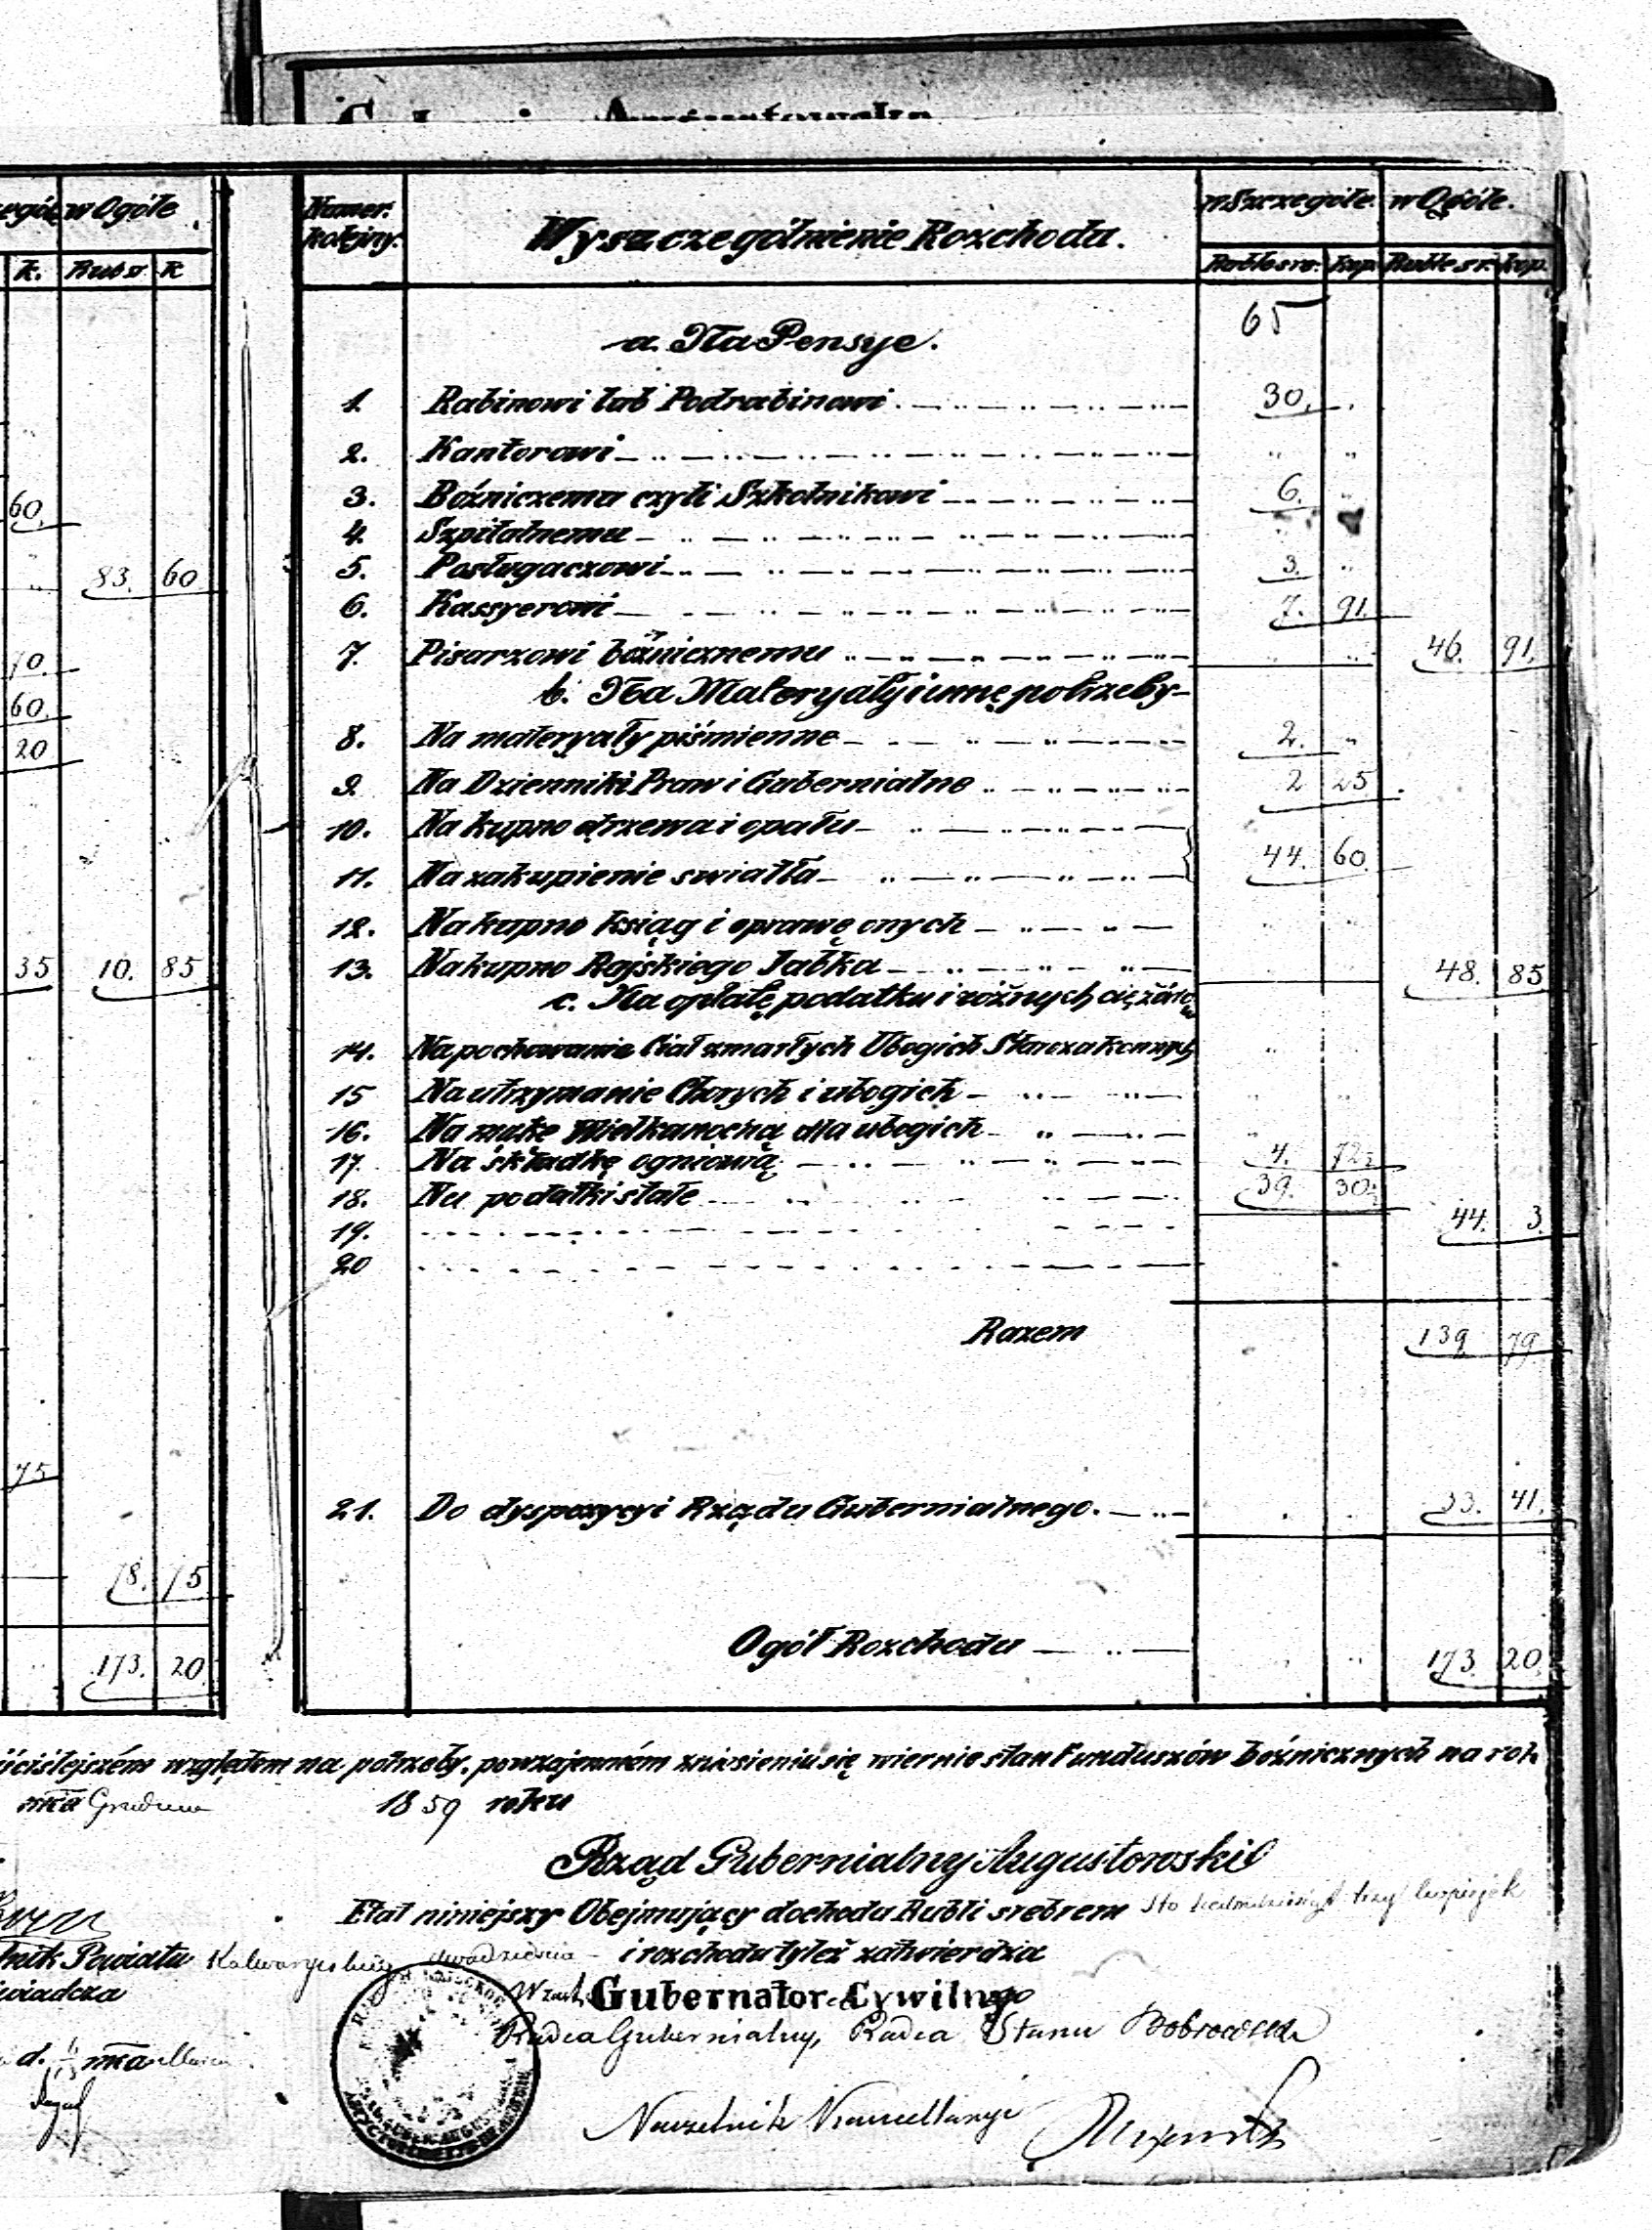 w Ogóle
K. Rub sr K
60.
83. 60
10.
60.
20
35 10. 85
75
18. 75
173. 20
Numer kolejny. Wyszczególnienie Rozchodu. w Szczególe. w Ogóle.
Ruble sre. Kop. Ruble sr. kop.
65
a. Na Pensye.
1. Rabinowi lub Podrabinowi 30.
2. Kantorowi
3. Bóżniczemu czyli Szkolnikowi 6.
4. Szpitalnemu
5. Posługaczowi 3.
6. Kassyerowi 7. 91.
7. Pisarzowi bóżnicznemu 46. 91.
b. Na Materyały i inne potrzeby
8. Na materyały piśmienne 2.
9. Na Dzienniki Praw i Gubernialne 2 25
10. Na kupno drzewa i opału
11. Na zakupienie swiatła 44. 60
12. Na kupno ksiąg i oprawę onych
13. Na kupno Rajskiego Jabka 48. 85
c. Na opłatę podatku i różnych ciężarów
14. Na pochowanie Ciał zmarłych Ubogich Starozakonnych
15 Na utrzymanie Chorych i ubogich
16. Na mąkę Wielkanocną dla ubogich
17. Na składkę ogniową 4. 72
18. Na podatki stałe 39. 30
19. 44. 3
20
Razem 139 79
21. Do dyspozycyi Rządu Gubernialnego. 33. 41.
Ogół Rozchodu 173 20
względem na potrzeby, po wzajemném zniesieniu się wiernie stan Funduszów bóżnicznych na rok
mca Grudnia 1859 roku
Rząd Gubernialny Augustowski
Etat niniejszy Obejmujący dochodu Rubli srebrem sto siedmdziesiąt trzy kopiejek
Powiatu Kalwaryjskiego dwadzieścia i rozchodu tyleż zatwierdza
Gubernator Cywilny
Radca Gubernialny, Radca Stanu
d. mca
Naczelnik Kancellaryi